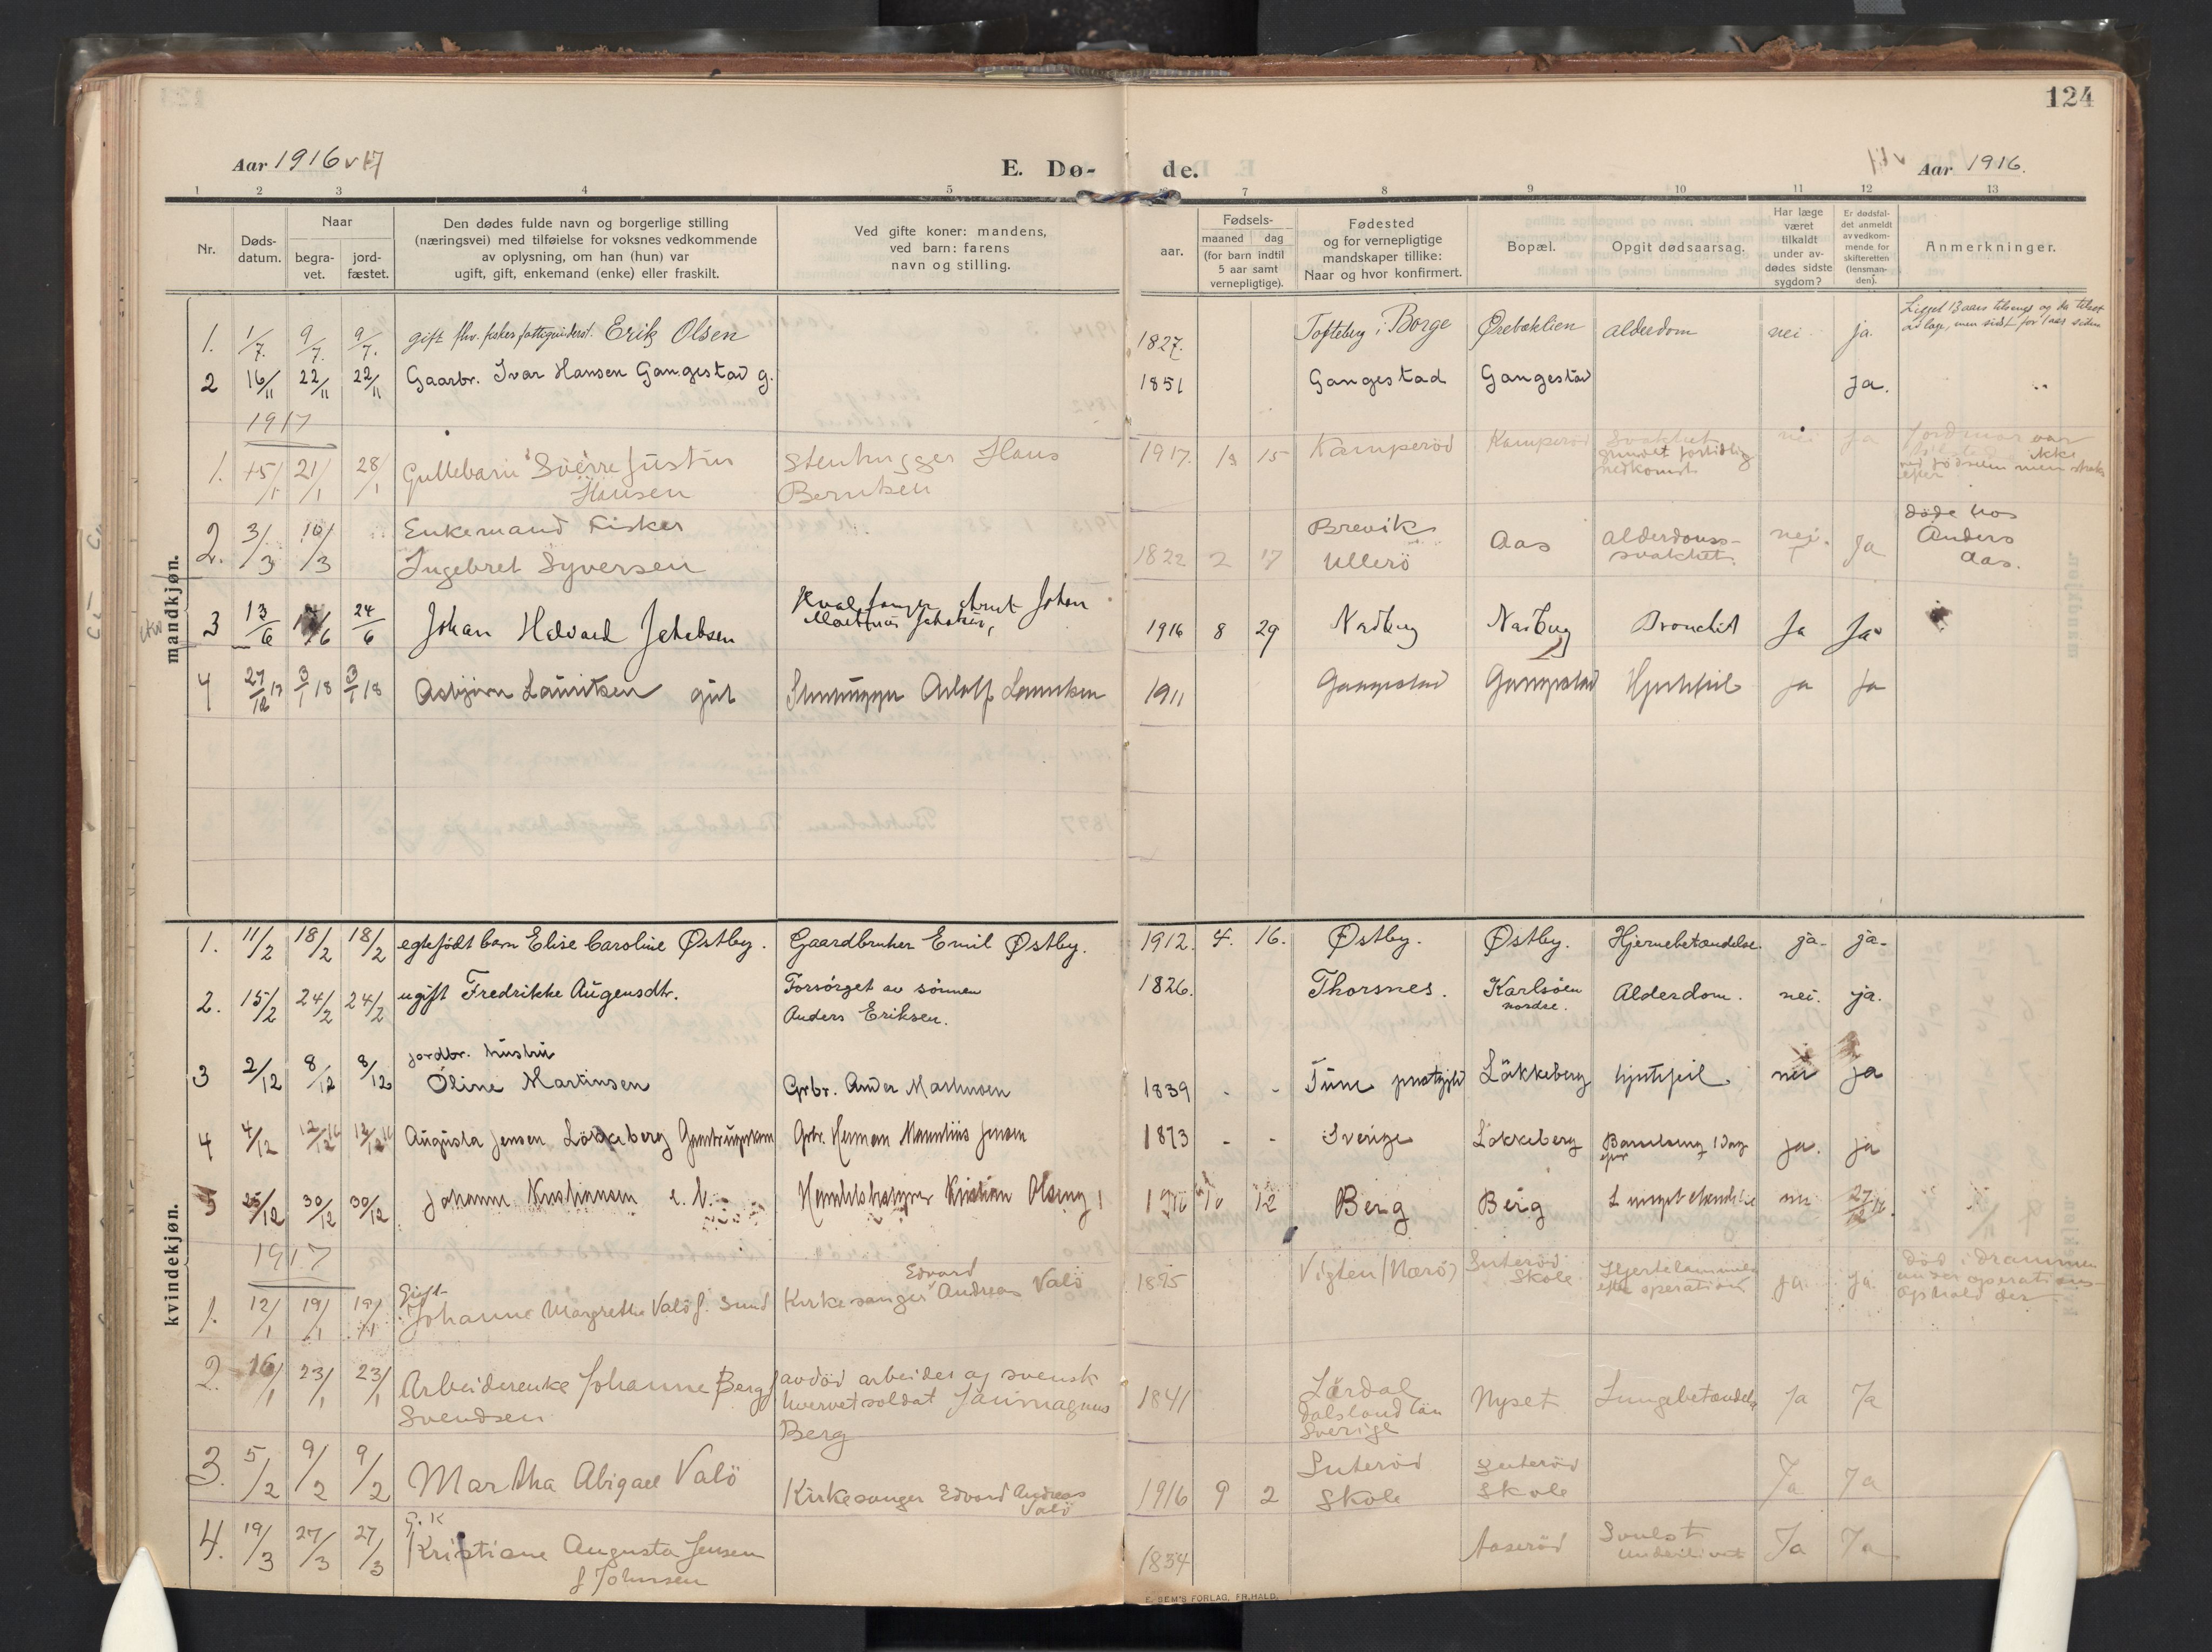 124
Aar 1916 v 17
E. Dø-
de.
Aar 1916.
1 2 3 4 5 7 8 9 10 11 12 13
Nr.
Døds-
datum.
Naar
begra-
vet.
jord-
fæstet.
Den dødes fulde navn og borgerlige stilling
(næringsvei) med tilføielse for voksnes vedkommende
av oplysning, om han (hun) var
ugift, gift, enkemand (enke) eller fraskilt.
Ved gifte koner: mandens,
ved barn: farens
navn og stilling.
aar.
Fødsels-
maaned dag
(for barn indtil
5 aar samt
vernepligtige).
Fødested
og for vernepligtige
mandskaper tillike:
Naar og hvor konfirmert.
Bopæl.
Opgit dødsaarsag.
Har læge
været
tilkaldt
under av-
dødes sidste
sygdom?
Er dødsfal-
det anmeldt
av vedkom-
mende for
skifteretten
(lensman-
den).
Anmerkninger.
mandkjøn.
1. 1/7. 9/7. 9/7. gift fhv. fisker fattigunderst. Erik Olsen 1827. Tofteberg i Borge alderdom nei ja.
2 16/11 22/11 22/11 Gaarbr. Ivar Hansen Gangestad g. 1851 Gangestad Gangestad ja.
1917
1. 15/1 21/1 28/1 Guttebarn Sverre Justin
Hansen
Stenhugger Hans
Berntsen
1917. 1 15 Kamperöd Kamperöd Svakhet
grundet fortidlig
nedkomst
nei ja
2. 3/3 10/3 Enkemand Fisker
Ingebret Syversen
1822 2 17 Brevik
Ullerö
Aas alderdomss-
svakhet
nei. Ja döde hos
Anders
Aas.
3 13/6 24/6 Johan Halvard Jakobsen 1916 8 29 Bronchit Ja Ja
4 27/12 17 3/1 18 3/1 18 Asbjørn Lauritsen gut 1911 Gangestad Gangestad Hjertefeil ja ja
kvindekjøn.
1. 11/2 18/2 18/2 egtefødt barn Elise Caroline Østby. Gaardbruker Emil Østby. 1912. 4. 16. Østby. Østby. Hjernebetændelse. ja. ja.
2. 15/2 24/2 24/2 ugift Fredrikke Augensdtr. Forsørget av sönnen
Anders Eriksen.
1826. Thorsnes. Karlsøen
nordre.
Alderdom. nei. ja.
3 2/12 8/12 8/12 jordbr. hustru
Oline Martinsen
Grbr. Martinsen 1839 - - Tune Lökkeberg hjertefeil nei ja
4 4/12 12/12 16 12/12 16 Augusta Jensen Lökkeberg Grbr. Herman Jensen 1873 - - Sverige Lökkeberg ja. ja
5 25/12 30/12 30/12 Johanne Kristiansen Kristian 1916 10 12 Berg Berg nei 27/12 16.
1917
1. 12/1 19/1 19/1 Gift
Johanne Margrethe Valö f. Sund
Edvard
Kirkesanger Andreas Valö
1895 Vigten (Nærö) Suteröd
Skole
efter operation
ja. ja. Död i Drammen
under operations-
ophold der
2. 16/1 23/1 23/1 Arbeiderenke Johanne Berg f
Svendsen
avdöd arbeider og svensk
hvervet soldat Janmagnus
Berg
1841 Lärdal
Dalsland län
Sverige
Nyset Lungebetændelse Ja Ja
3. 5/2 9/2 9/2 Martha Abigael Valö Kirkesanger Edvard Andreas
Valö
1916 9 2 Suteröd
Skole
Suteröd
Skole
Ja Ja
4. 19/3 27/3 27/3 G. K
Kristiane Augusta Jensen
f Johnsen
1834 Aaseröd Svulst
Underlivet
Ja Ja
E. SEM'S FORLAG, FR.HALD.